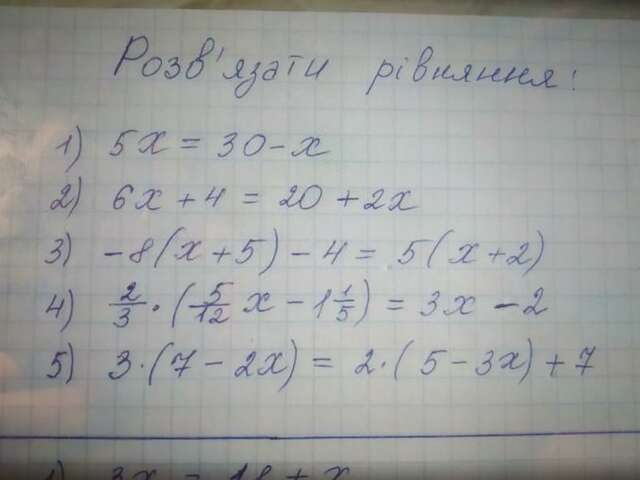 Розв'язати рівняння:
1) 5x = 30 - x
2) 6x + 4 = 20 + 2x
3) -8(x + 5) - 4 = 5(x + 2)
4) 2/3 · (5/12 x - 1 1/5) = 3x - 2
5) 3·(7 - 2x) = 2·(5 - 3x) + 7
1) 3x = 18 + x